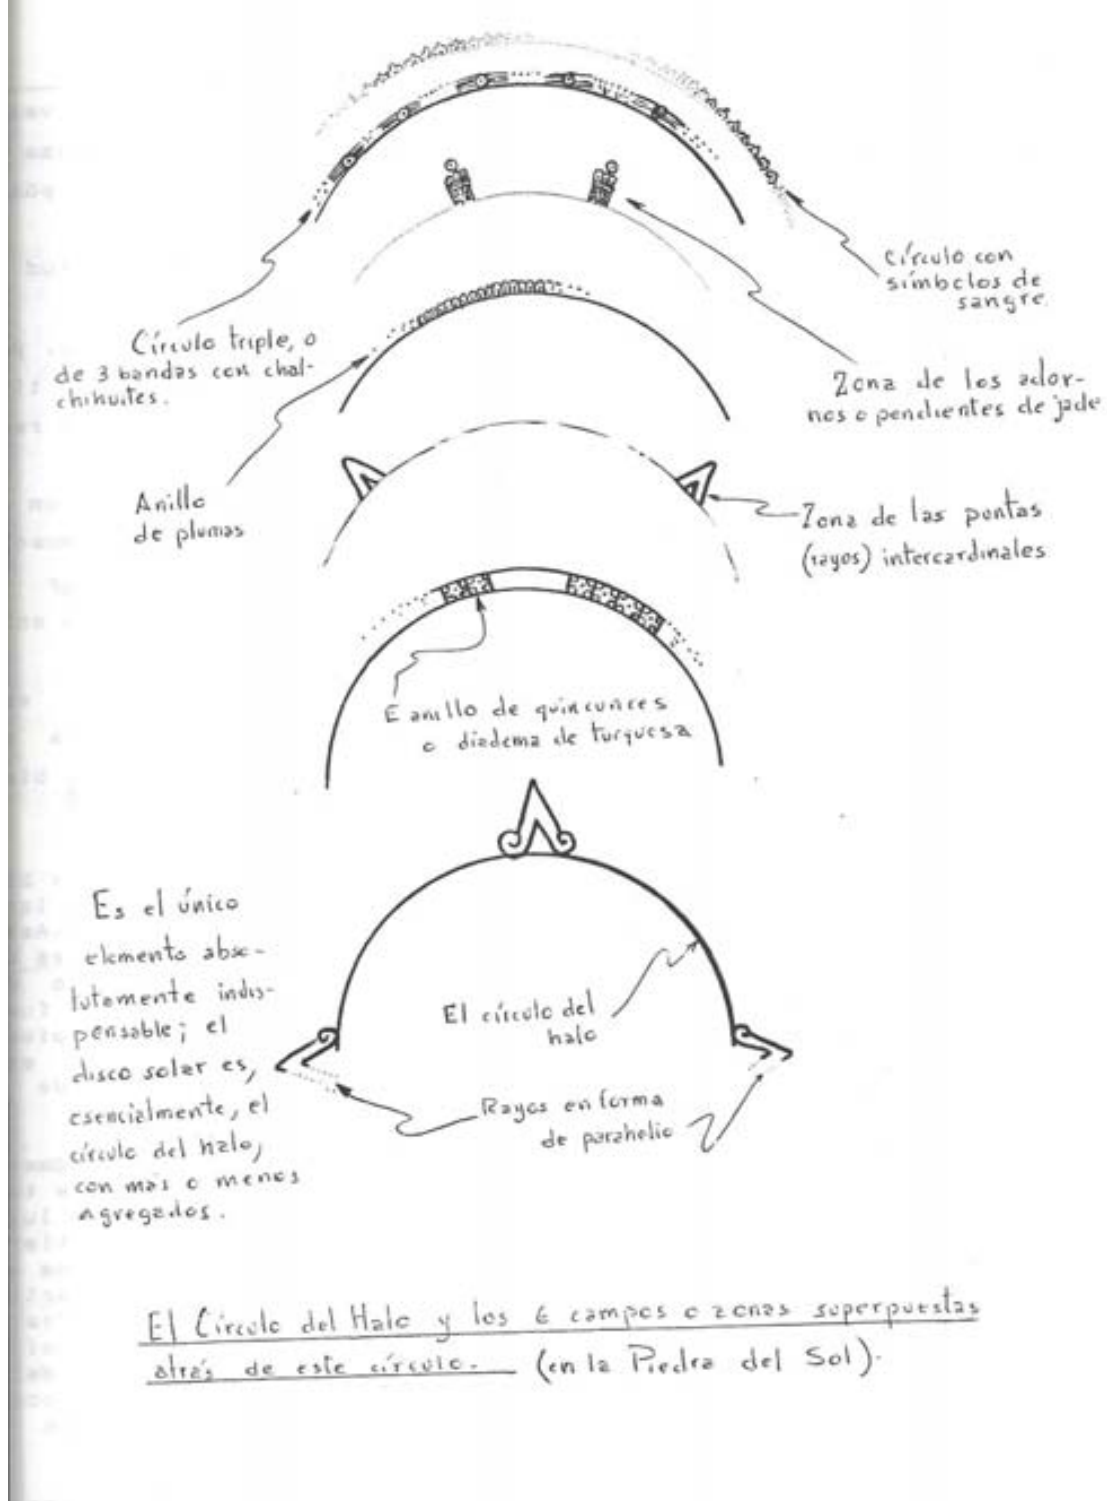 Círculo con
símbolos de
sangre.
Círculo triple, o
de 3 bandas con chal-
chihuites.
Zona de los ador-
nos o pendientes de jade
Anillo
de plumas
Zona de las puntas
(rayos) intercardinales
E anillo de quincunces
o diadema de turquesa
Es el único
elemento abso-
lutamente indis-
pensable; el
disco solar es,
esencialmente, el
círculo del halo,
con más o menos
agregados.
El círculo del
halo
Rayos en forma
de parahelio
El Círculo del Halo y los 6 campos o zonas superpuestas
atrás de este círculo. (en la Piedra del Sol).